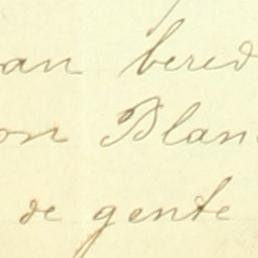 an bered
on Blan
de gente